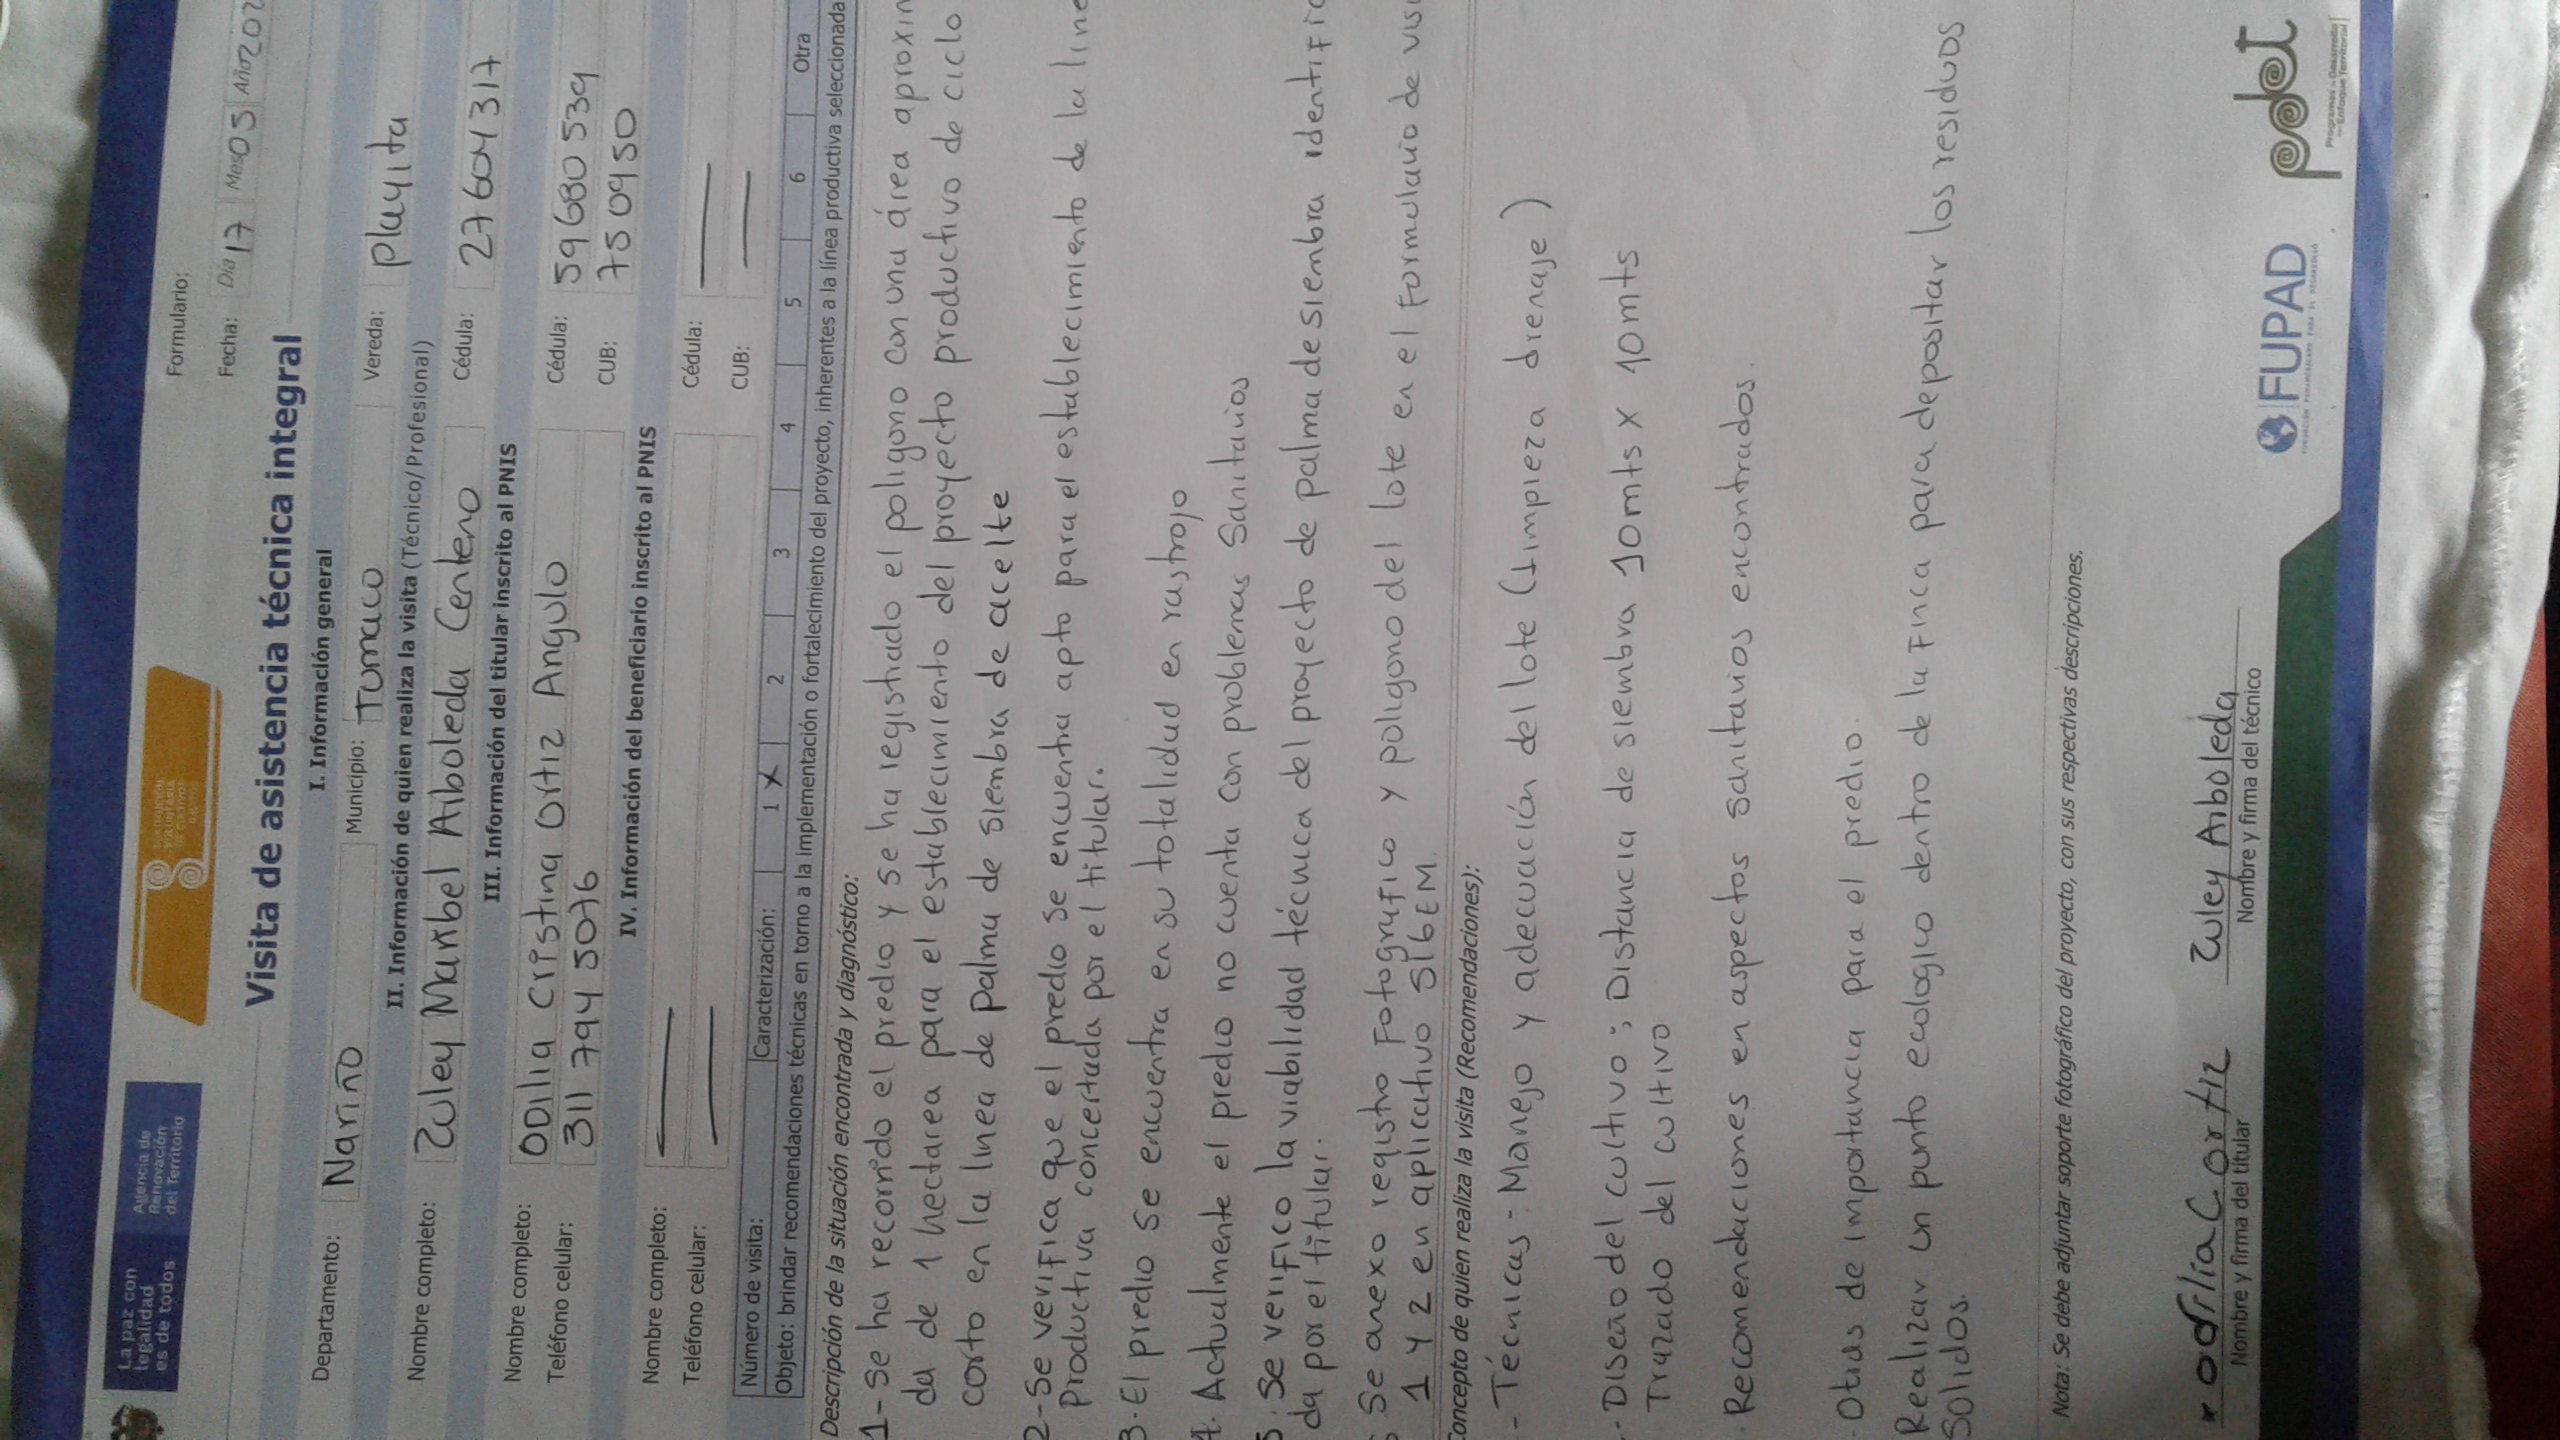 La paz con
legalidad
es de todos
Agencia de
Renovación
del Territorio
SUSTITUCIÓN
VOLUNTARIA
DE CULTIVOS
ILÍCITOS
Formulario:
Fecha: Día 17 Mes 05 Año 202
Visita de asistencia técnica integral
I. Información general
Departamento: Nariño Municipio: Tumaco Vereda: playita
II. Información de quien realiza la visita (Técnico/Profesional)
Nombre completo: Zuley Maribel Arboleda Centeno Cédula: 27604317
III. Información del titular inscrito al PNIS
Nombre completo: Odilia Cristina Ortiz Angulo Cédula: 59680539
Teléfono celular: 311 794 5076 CUB: 7509450
IV. Información del beneficiario inscrito al PNIS
Nombre completo: — Cédula: —
Teléfono celular: — CUB: —
Número de visita: Caracterización: 1 X 2 3 4 5 6 Otra
Objeto: brindar recomendaciones técnicas en torno a la implementación o fortalecimiento del proyecto, inherentes a la línea productiva seleccionada
Descripción de la situación encontrada y diagnóstico:
1- se ha recorrido el predio y se ha registrado el poligono con una área aproxim
da de 1 hectarea para el establecimiento del proyecto productivo de ciclo
corto en la linea de palma de siembra de aceite
2- Se verifica que el predio se encuentra apto para el establecimiento de la line
productiva concertada por el titular.
3. El predio se encuentra en su totalidad en rastrojo
4. Actualmente el predio no cuenta con problemas Sanitarios
5. Se verifico la viabilidad técnica del proyecto de palma de siembra identific
da por el titular.
Se anexo registro Fotografico y poligono del lote en el formulario de visi
1 y 2 en aplicativo SIGEM.
Concepto de quien realiza la visita (Recomendaciones):
- Técnicas: Manejo y adecuación del lote (Limpieza drenaje)
- Diseño del cultivo: Distancia de siembra 10mts x 10mts
Trazado del cultivo
. Recomendaciones en aspectos sanitarios encontrados.
. Otras de importancia para el predio.
Realizar un punto ecologico dentro de la Finca para depositar los residuos
Solidos.
Nota: Se debe adjuntar soporte fotográfico del proyecto, con sus respectivas descripciones.
x odilia C ortiz
Nombre y firma del titular
Zuley Arboleda
Nombre y firma del técnico
FUPAD
FUNDACIÓN PANAMERICANA PARA EL DESARROLLO
pdet
Programas de Desarrollo
con Enfoque Territorial